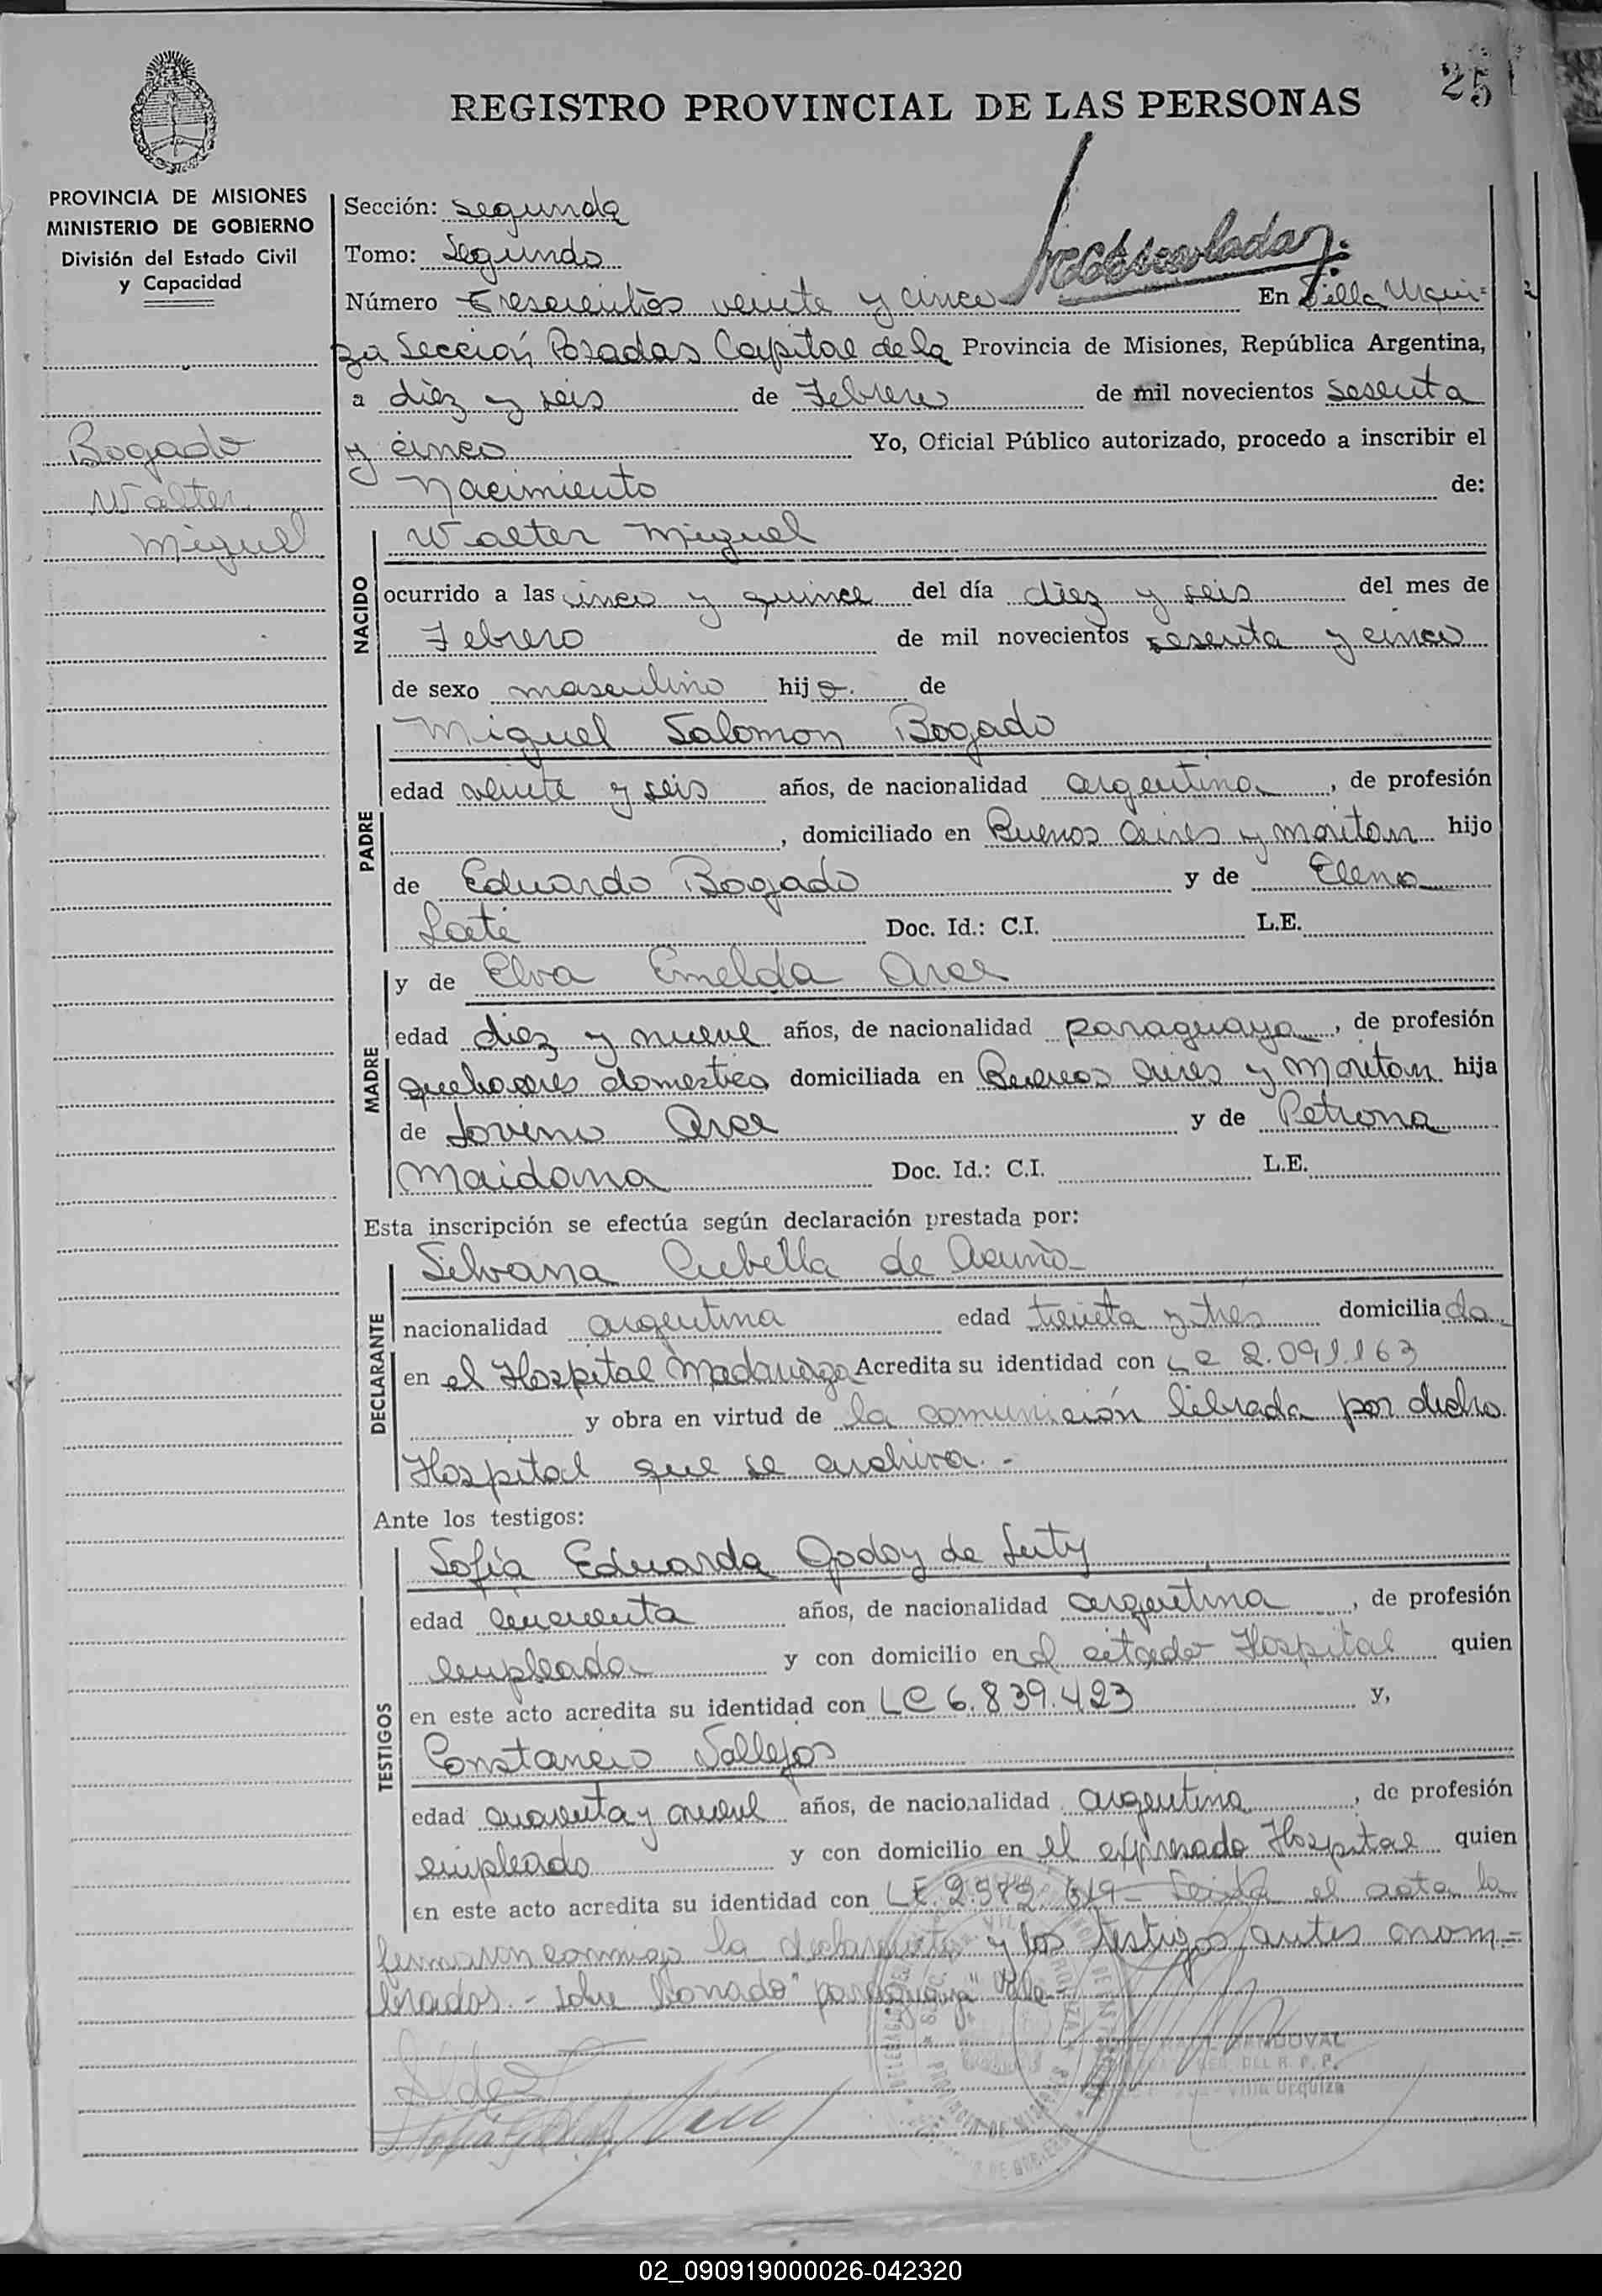 25
REGISTRO PROVINCIAL DE LAS PERSONAS
PROVINCIA DE MISIONES
MINISTERIO DE GOBIERNO
División del Estado Civil
y Capacidad
Bogado
Walter
Miguel
Sección: segunda
Tomo: Segundo
Número Trescientos veinte y cinco En Villa Urqui=
za Sección Posadas Capital de la Provincia de Misiones, República Argentina,
a diez y seis de Febrero de mil novecientos sesenta
y cinco Yo, Oficial Público autorizado, procedo a inscribir el
Nacimiento de:
NACIDO
Walter Miguel
ocurrido a las cinco y quince del día diez y seis del mes de
Febrero de mil novecientos sesenta y cinco
de sexo masculino hijo. de
PADRE
Miguel Salomon Bogado
edad veinte y seis años, de nacionalidad argentina, de profesión
, domiciliado en Buenos Aires y Moritan hijo
de Eduardo Bogado y de Elena
Doc. Id.: C.I. L.E.
MADRE
y de Elva Emelda Arce
edad diez y nueve años, de nacionalidad paraguaya, de profesión
quehaceres domestico domiciliada en Buenos Aires y Moritan hija
de Arce y de Petrona
Maidana Doc. Id.: C.I. L.E.
Esta inscripción se efectúa según declaración prestada por:
DECLARANTE
Silvana Cubella de Acuña
nacionalidad argentina edad treinta y tres domiciliada
en el Hospital Madariaga Acredita su identidad con LC 2.091.163
y obra en virtud de la comunicación librada por dicho
Hospital que se archiva.-
Ante los testigos:
TESTIGOS
Sofía Eduarda Godoy de
edad cincuenta años, de nacionalidad argentina, de profesión
empleada y con domicilio en el citado Hospital quien
en este acto acredita su identidad con LC 6.839.423 y,
Constancio Vallejos
edad cuarenta y nueve años, de nacionalidad argentina, de profesión
empleado y con domicilio en el expresado Hospital quien
en este acto acredita su identidad con LE 2.582.619 - Leída el acta la
firmaron conmigo la declarante y los testigos antes nom=
brados.- sobre borrado "paraguaya" Vale
SANDOVAL
DEL R. P. P.
Villa Urquiza
02_090919000026-042320